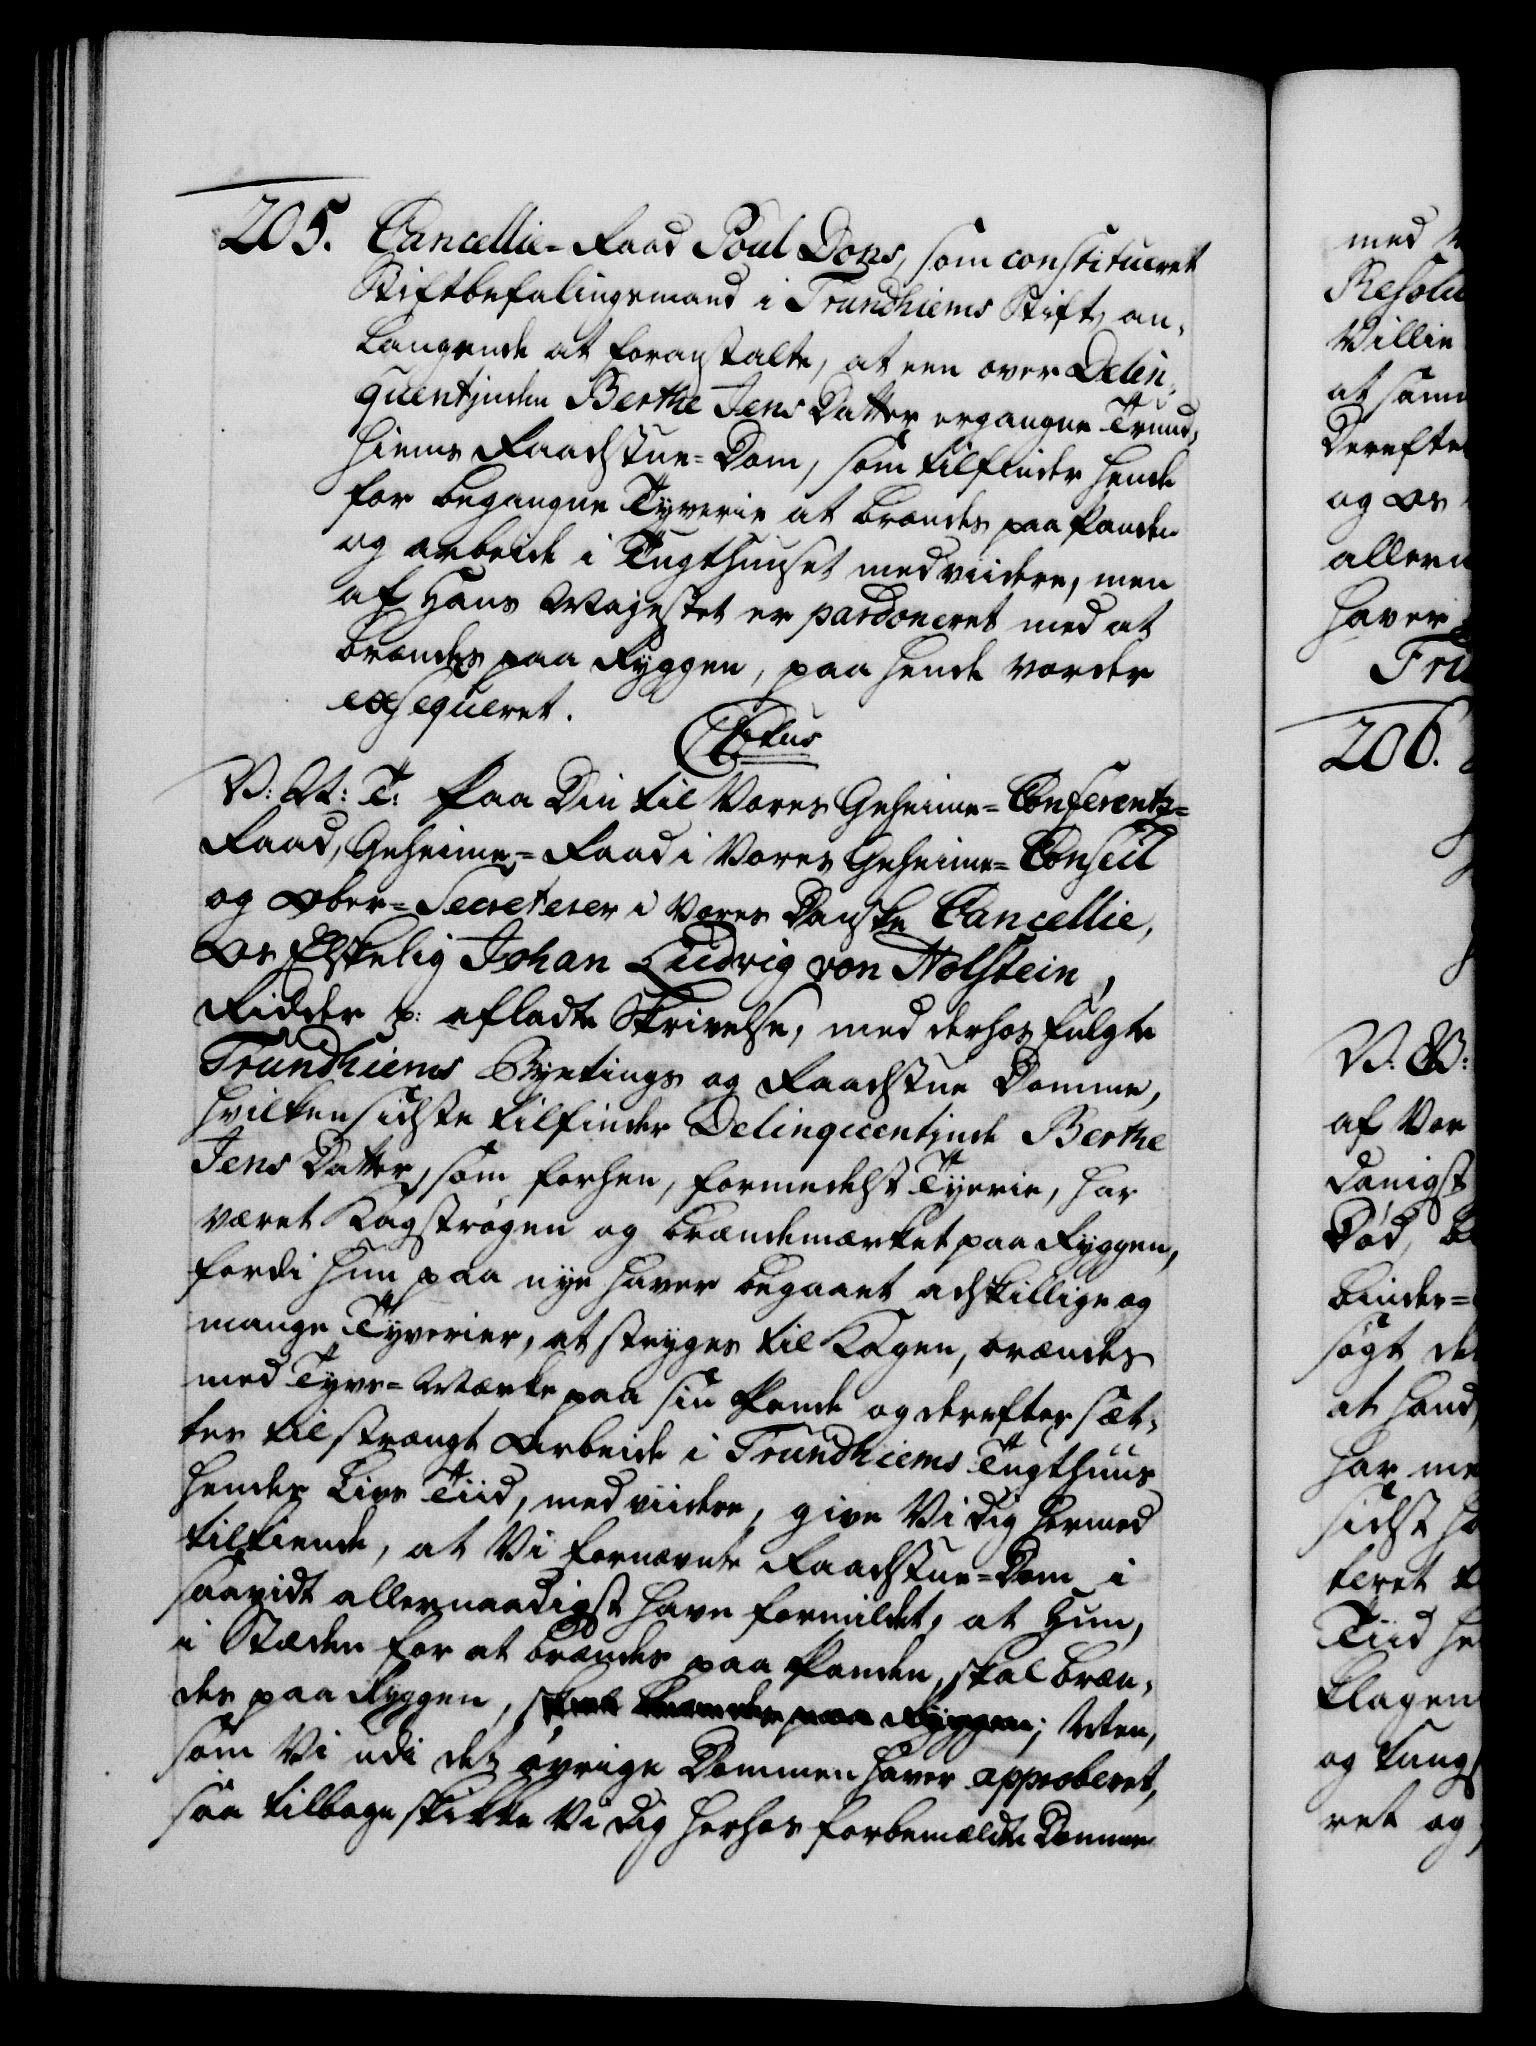 205. Cancellie-Raad Poul Dons, som constitueret
Stiftbefalingsmand i Trundhiems Stift, an-
langende at foranstalte, at een over Delin-
quentinden Berthe Jens Datter ergangne Trund-
hiems Raadstue-Dom, som tilfinder hende
for begangne Tyverie at brændes paa Panden
og arbeide i Tugthuuset med viidere, men
af Hans Mayestet er pardoneret med at
brændes paa Ryggen, paa hende vorder
exsequeret.
V: G: T: Paa Din til Vores Geheime-Conferentz-
Raad, Geheime-Raad i Vores Geheime-Conseil
og Ober-Secreterer i Vores Danske Cancellie,
Os Elskelig Johan Ludvig von Holstein,
Ridder p: afladte Skrivelse, med derhos fulgte
Trundhiems Byetings og Raadstue Domme,
hvilken sidste tilfinder Delinqventinde Berthe
Jens Datter, som forhen, formedelst Tyverie, har
været Kagstrøgen og brændemærket paa Ryggen,
fordi hun paa nye haver begaaet adskillige og
mange Tyverier, at stryges til Kagen, brændes
med Tyvs-Mærke paa sin Pande og derefter sæt-
tes til strængt Arbeide i Trundhiems Tugthuus
hendes Livs Tiid, med viidere, give Vi dig hermed
tilkiende, at Vi fornævnte Raadstue-Dom i
saavidt allernaadigst have formildet, at Hun,
i Stæden for at brændes paa Panden, skal bræn-
des paa Ryggen, skal brændes paa Ryggen; Men,
som Vi udi det øvrige Dommen haver approberet,
saa tilbage skikke Vi dig herhos forbemældte Domme
med
Resolu
Villie
at sam
Derefte
og Os
allern
haver
Fri
206.
af Vor
danigst
Død,
binder-
søgt de
at hand
har me
sidst ha
teret
Tiid he
klagen
og tung
ret og